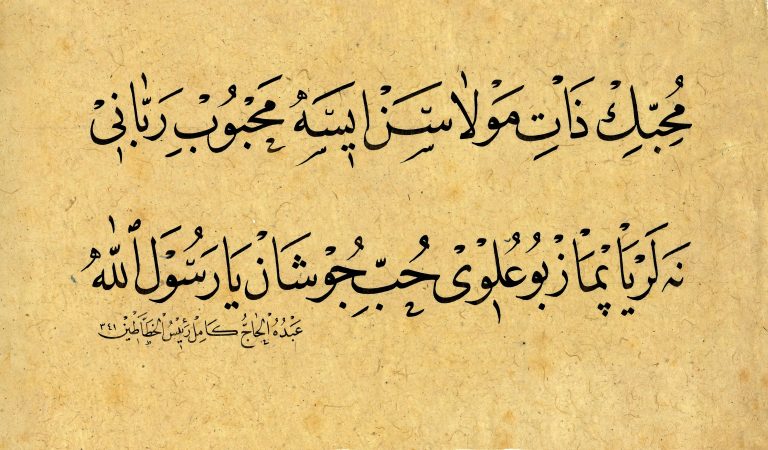 مُحِبِّكْ ذَاتِ مَوْلَا سَّنْ ايسَه مَحْبُوبْ رَبَّانِيْ
نَه لَرْ يَاپْمَازْ بُو عُلْوِيْ حُبِّ جُوشَانْ يَا رَسُولَ اللّٰه
عَبْدُهُ الْحَاجُّ كَامِلْ رَئِيسُ الْخَطَّاطِينْ ٣٤١